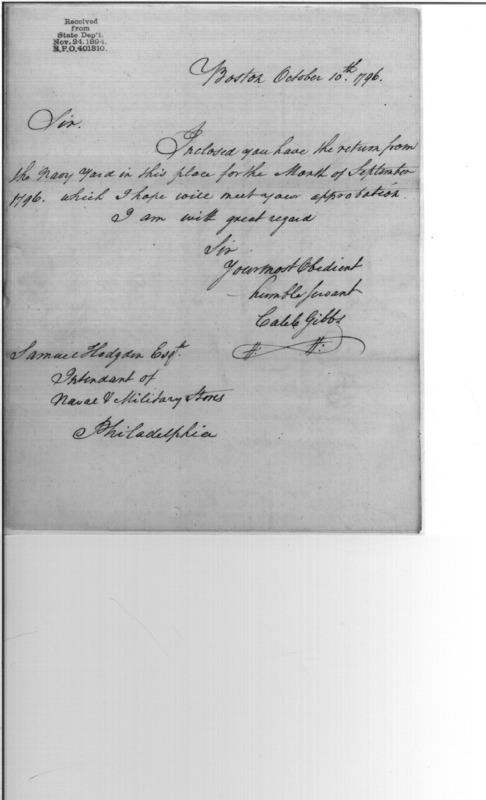 Received
from
State Dep't.
Nov. 24. 1894.
R.P.O. 401310.
Boston October 10.th 1796.
Sir.
Inclosed you have the return from
the Navy Yard in this place for the Month of September
1796. which I hope will meet your approbation.
I am with great regard
Sir
Your most Obedient
humble servant
Caleb Gibbs
Samuel Hodgdon Esqr.
Intendant of
Naval & Military Stores
Philadelphia